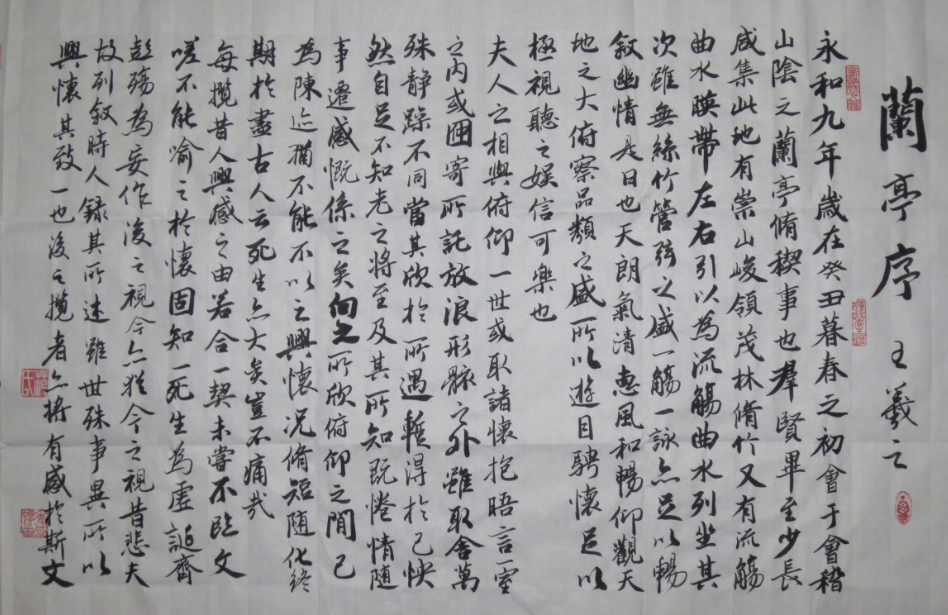 蘭亭序 王羲之
永和九年歲在癸丑暮春之初會于會稽
山陰之蘭亭脩禊事也群賢畢至少長
咸集此地有崇山峻領茂林脩竹又有流觴
曲水暎帶左右引以為流觴曲水列坐其
次雖無絲竹管弦之盛一觴一詠亦足以暢
敘幽情是日也天朗氣清惠風和暢仰觀天
地之大俯察品類之盛所以遊目騁懷足以
極視聽之娛信可樂也
夫人之相與俯仰一世或取諸懷抱晤言一室
之內或因寄所託放浪形骸之外雖取舍萬
殊靜躁不同當其欣於所遇暫得於己怏
然自足不知老之將至及其所知既惓情隨
事遷感慨係之矣向之所欣俯仰之間已
為陳迹猶不能不以之興懷況脩短隨化終
期於盡古人云死生亦大矣豈不痛哉
每攬昔人興感之由若合一契未嘗不臨文
嗟不能喻之於懷固知一死生為虛誕齊
彭殤為妄作後之視今亦猶今之視昔悲夫
故列敘時人錄其所述雖世殊事異所以
興懷其致一也後之攬者亦將有感於斯文